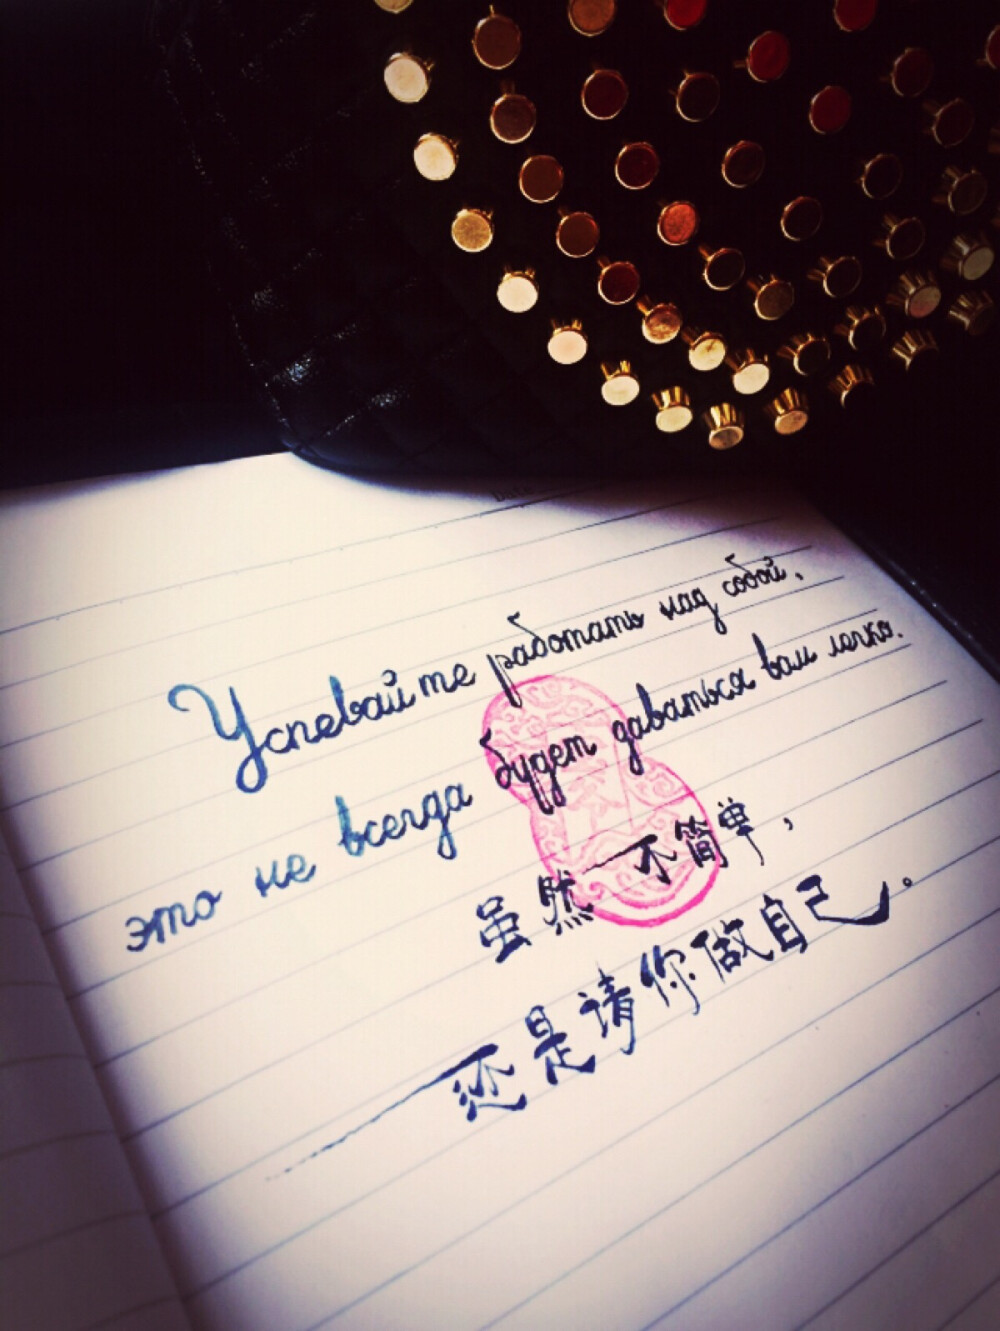 Успевайте работать над собой,
это не всегда будет даваться вам легко.
虽然不简单，
还是请你做自己。